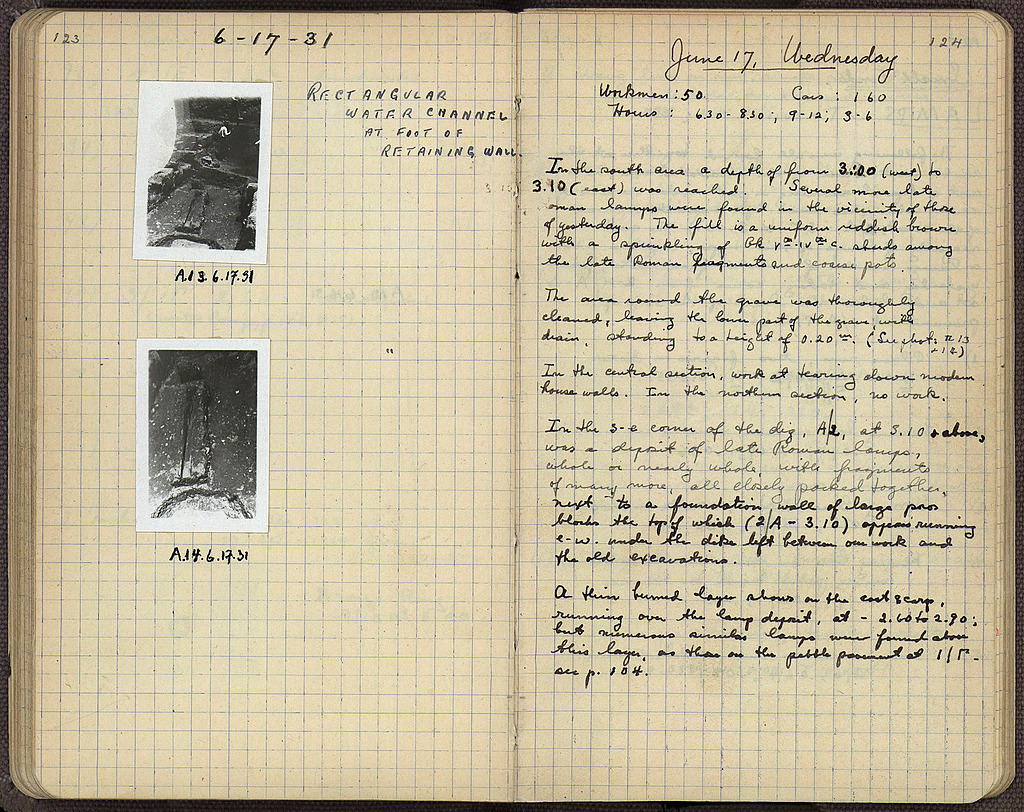 123
6-17-31
RECTANGULAR
WATER CHANNEL
AT FOOT OF
RETAINING WALL.
A.13.6.17.31
"
A.14.6.17.31
124
June 17, Wednesday
Workmen: 50 Cars: 160
Hours: 6.30-8.30; 9-12; 3-6
In the south area a depth of from 3.00 (west) to
3.10 (east) was reached. Several more late
Roman lamps were found in the vicinity of those
of yesterday. The fill is a uniform reddish brown
with a sprinkling of Bk V-IV c. sherds among
the late Roman fragments and coarse pots.
The area round the grave was thoroughly
cleaned, leaving the lower part of the grave, with
drain, standing to a height of 0.20 m. (See phot. 13
+14)
In the central section, work at tearing down modern
house walls. In the northern section, no work.
In the S-E corner of the dig, A/2, at 3.10 + above,
was a deposit of late Roman lamps,
whole or nearly whole, with fragments
of many more, all closely packed together,
next to a foundation wall of large poros
blocks the top of which (2/A - 3.10) appears running
e-w. under the dike left between our work and
the old excavations.
A thin burned layer shows on the east scarp,
running over the lamp deposit, at - 2.60 to 2.90;
but numerous similar lamps were found above
this layer, as those on the pebble pavement at 1/Γ -
see p. 104.